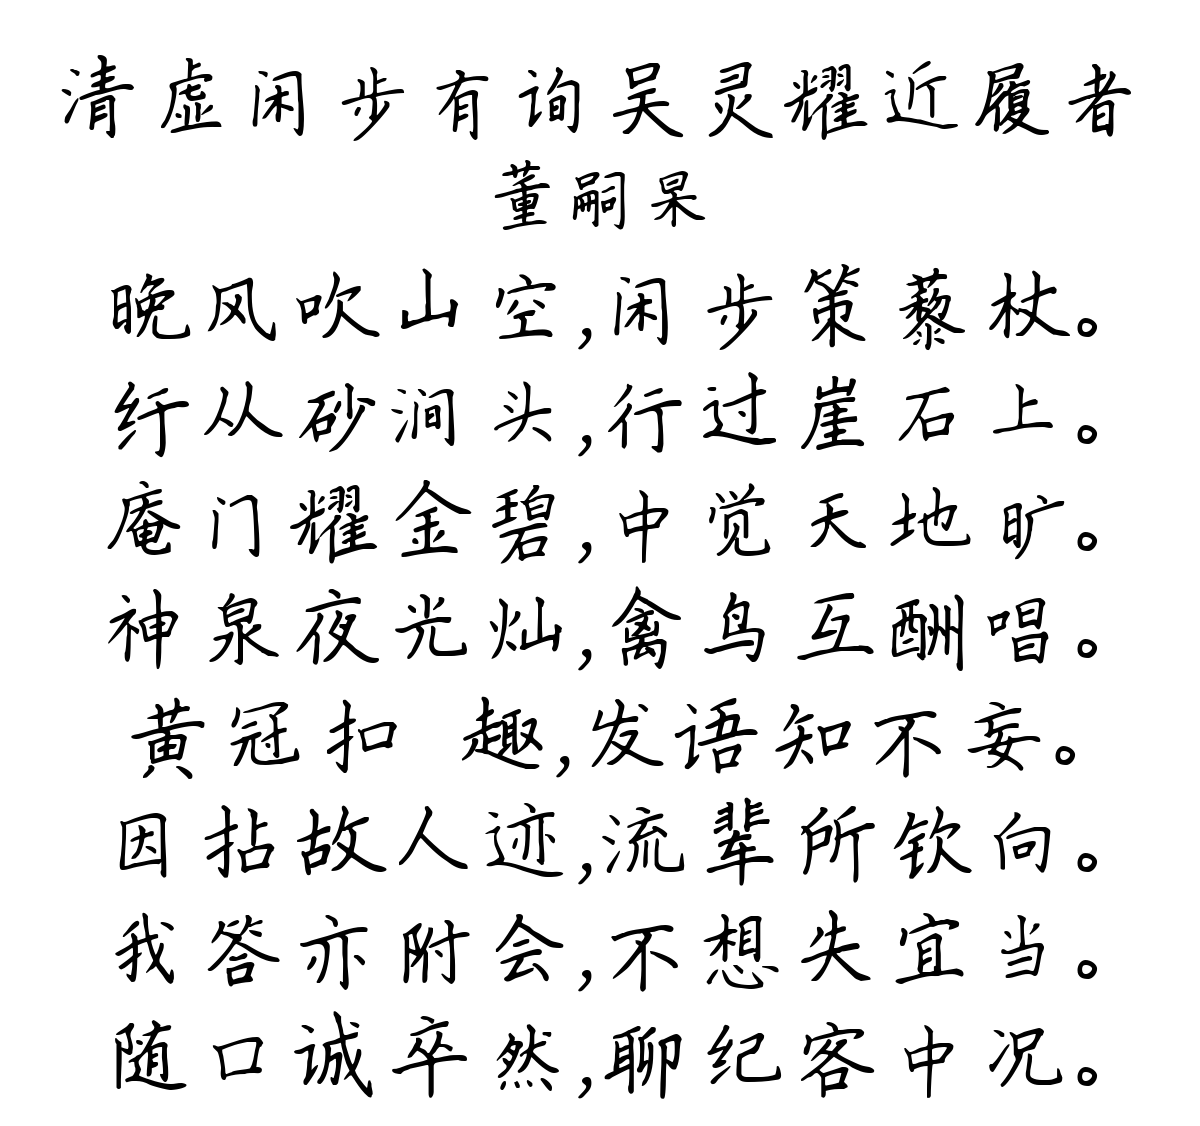 清虚闲步有询吴灵耀近履者
董嗣杲
晚风吹山空,闲步策藜杖。
纡从砂涧头,行过崖石上。
庵门耀金碧,中觉天地旷。
神泉夜光灿,禽鸟互酬唱。
黄冠扣 趣,发语知不妄。
因拈故人迹,流辈所钦向。
我答亦附会,不想失宜当。
随口诚卒然,聊纪客中况。